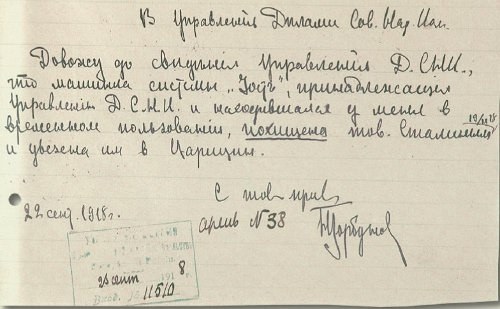 В Управленiя Делами Сов. Нар. Ком.
Довожу до сведенiя Управленiя Д. С. Н. К.,
что машинка системы "Jост", принадлежащая
Управленiи Д. С. Н. К. и находившаяся у меня в
временном пользованiи, похищена тов. Сталиным 19/IX 18
и увезена им в Царицын.
С тов. прив.
22 сент. 1918 г.
армь N 38
Горбунов
25 сент 191 8.
11510